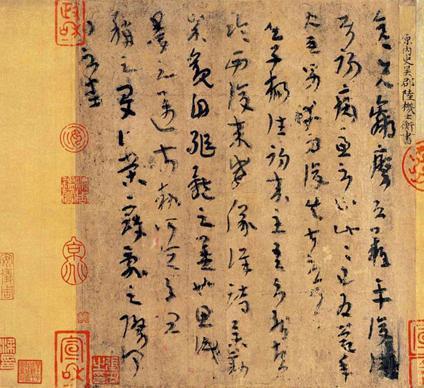 原內史吳郡陸機士衡書
彦先羸瘵恐難平復
往屬初病慮不止此此已為慶承
使唯男幸為復失前憂耳
吳子楊往初來主吾不能盡
臨西復來威儀詳跱舉動
成觀自軀體之美也思識
量之邁前勢所恒有宜
稱之夏伯榮寇亂之際聞
問不悉